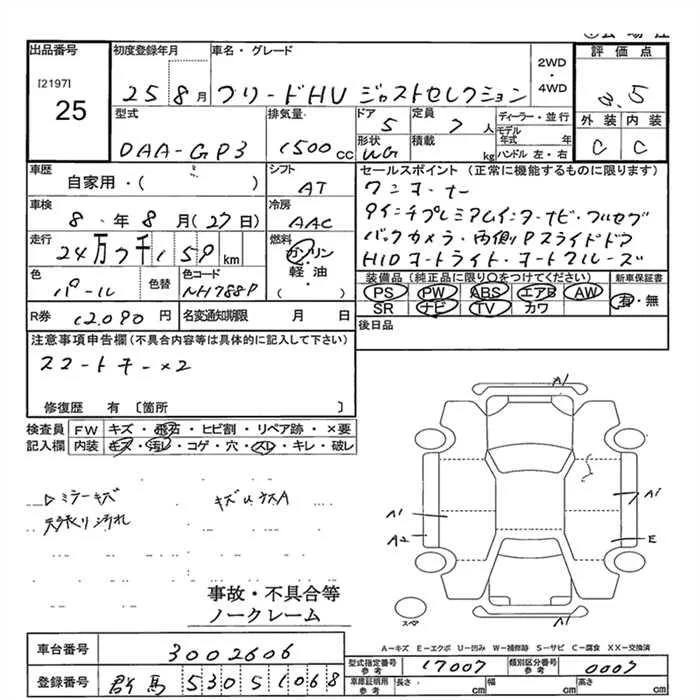 出品番号 初度登録年月 車名・グレード 評価点
[2197]
25
25 8月 フリードHV ジャストセレクション 2WD・4WD 3.5
型式 排気量 ドア 定員 ディーラー・並行 外装 内装
DAA-GP3 1500cc 5 7人 モデル年式 年 C C
形状 積載 kg ハンドル 左・右
WG
車歴 シフト セールスポイント(正常に機能するものに限ります)
自家用・( ) AT ワンオーナー
車検 冷房 9インチプレミアムインターナビ・フルセグ
8年8月(27日) AAC バックカメラ・両側Pスライドドア
走行 燃料 HIDオートライト・オートクルーズ
24万7千159km ガソリン
軽・油
( )
色 色替 色コード 装備品(純正品に限り○をつけてください) 新車保証書
パール NH788P PS PW ABS エアB AW 有・無
SR ナビ TV カワ
R券 12,090円 名変通知期限 月 日 後日品
注意事項申告欄(不具合内容等は具体的に記入して下さい)
スマートキー×2
修復歴 有〔箇所 〕
検査員 FW キズ・飛石・ヒビ割・リペア跡・×要
記入欄 内装 キズ・汚レ・コゲ・穴・スレ・キレ・破レ
ミラーキズ キズUスA
天張り汚れ
A1
A1
A1
A2
E
スペア
事故・不具合等
ノークレーム
A-キズ E-エクボ U-凹み W-補修跡 S-サビ C-腐食 XX-交換済
車台番号 3002606 型式指定番号 参考 17007 類別区分番号 参考 0003
登録番号 群馬 530 5 1068 車庫証明用 参考 長さ cm 幅 cm 高さ cm